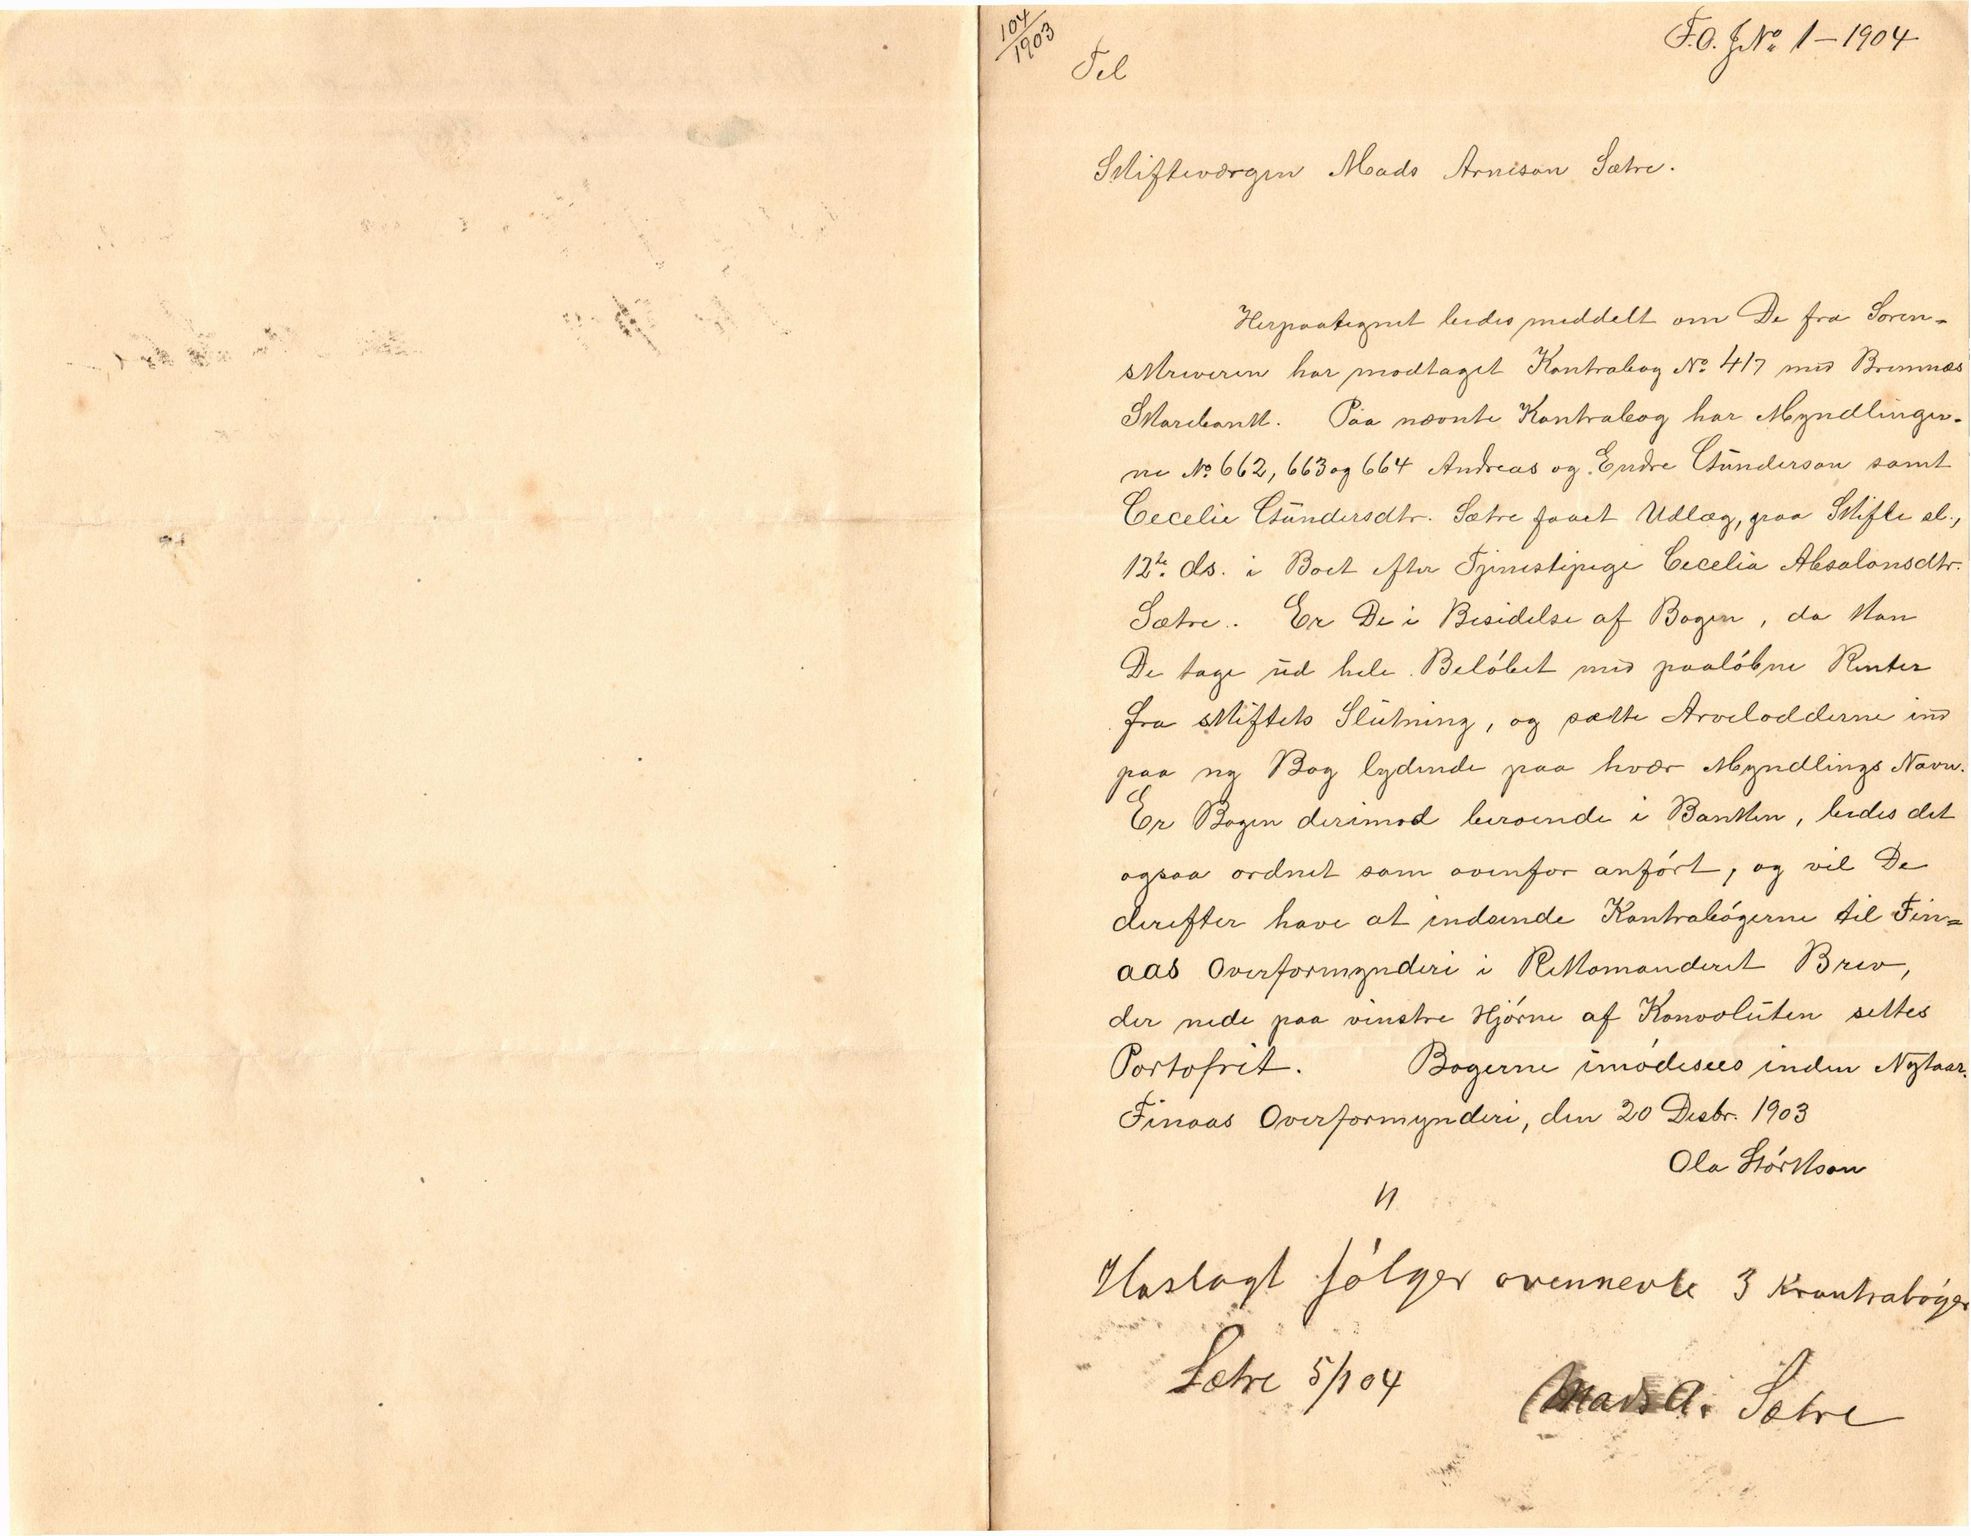 104/1903
F.O. J.No 1 – 1904
Til
Skifteværgen Mads Arneson Sætre.
Herpaategnet bedes meddelt om De fra Soren-
skriveren har modtaget Kontrabog No. 417 med Bremnæs
Sparebank. Paa nævnte Kontrabog har Myndlinger-
ne No. 662, 663 og 664 Andreas og Endre Gunderson samt
Cecelie Gundersdtr. Sætre faaet Udlæg, paa Skifte sl.,
12te. ds. i Boet efter Tjenestepige Cecelia Absalonsdtr.
Sætre. Er De i Besidelse af Bogen, da kan
De tage ud hele Beløbet med paaløbne Renter
fra skiftets Slutning, og sætte Arvelodderne ind
paa ny Bog lydende paa hvær Myndlings Navn.
Er Bogen derimod beroende i Banken, bedes det
ogsaa ordnet som ovenfor anført, og vil De
derefter have at indsende Kontrabøgerne til Fin=
aas Overformynderi i Rekomanderet Brev,
der nede paa venstre Hjørne af Konvoluten settes
Portofrit. Bogerne imødesees inden Nytaar.
Finaas Overformynderi, den 20 Desbr. 1903
Ola Størkson
Haslagt følger ovennevte 3 Krontrabøger
Sætre 5/1 04
Mads A. Sætre